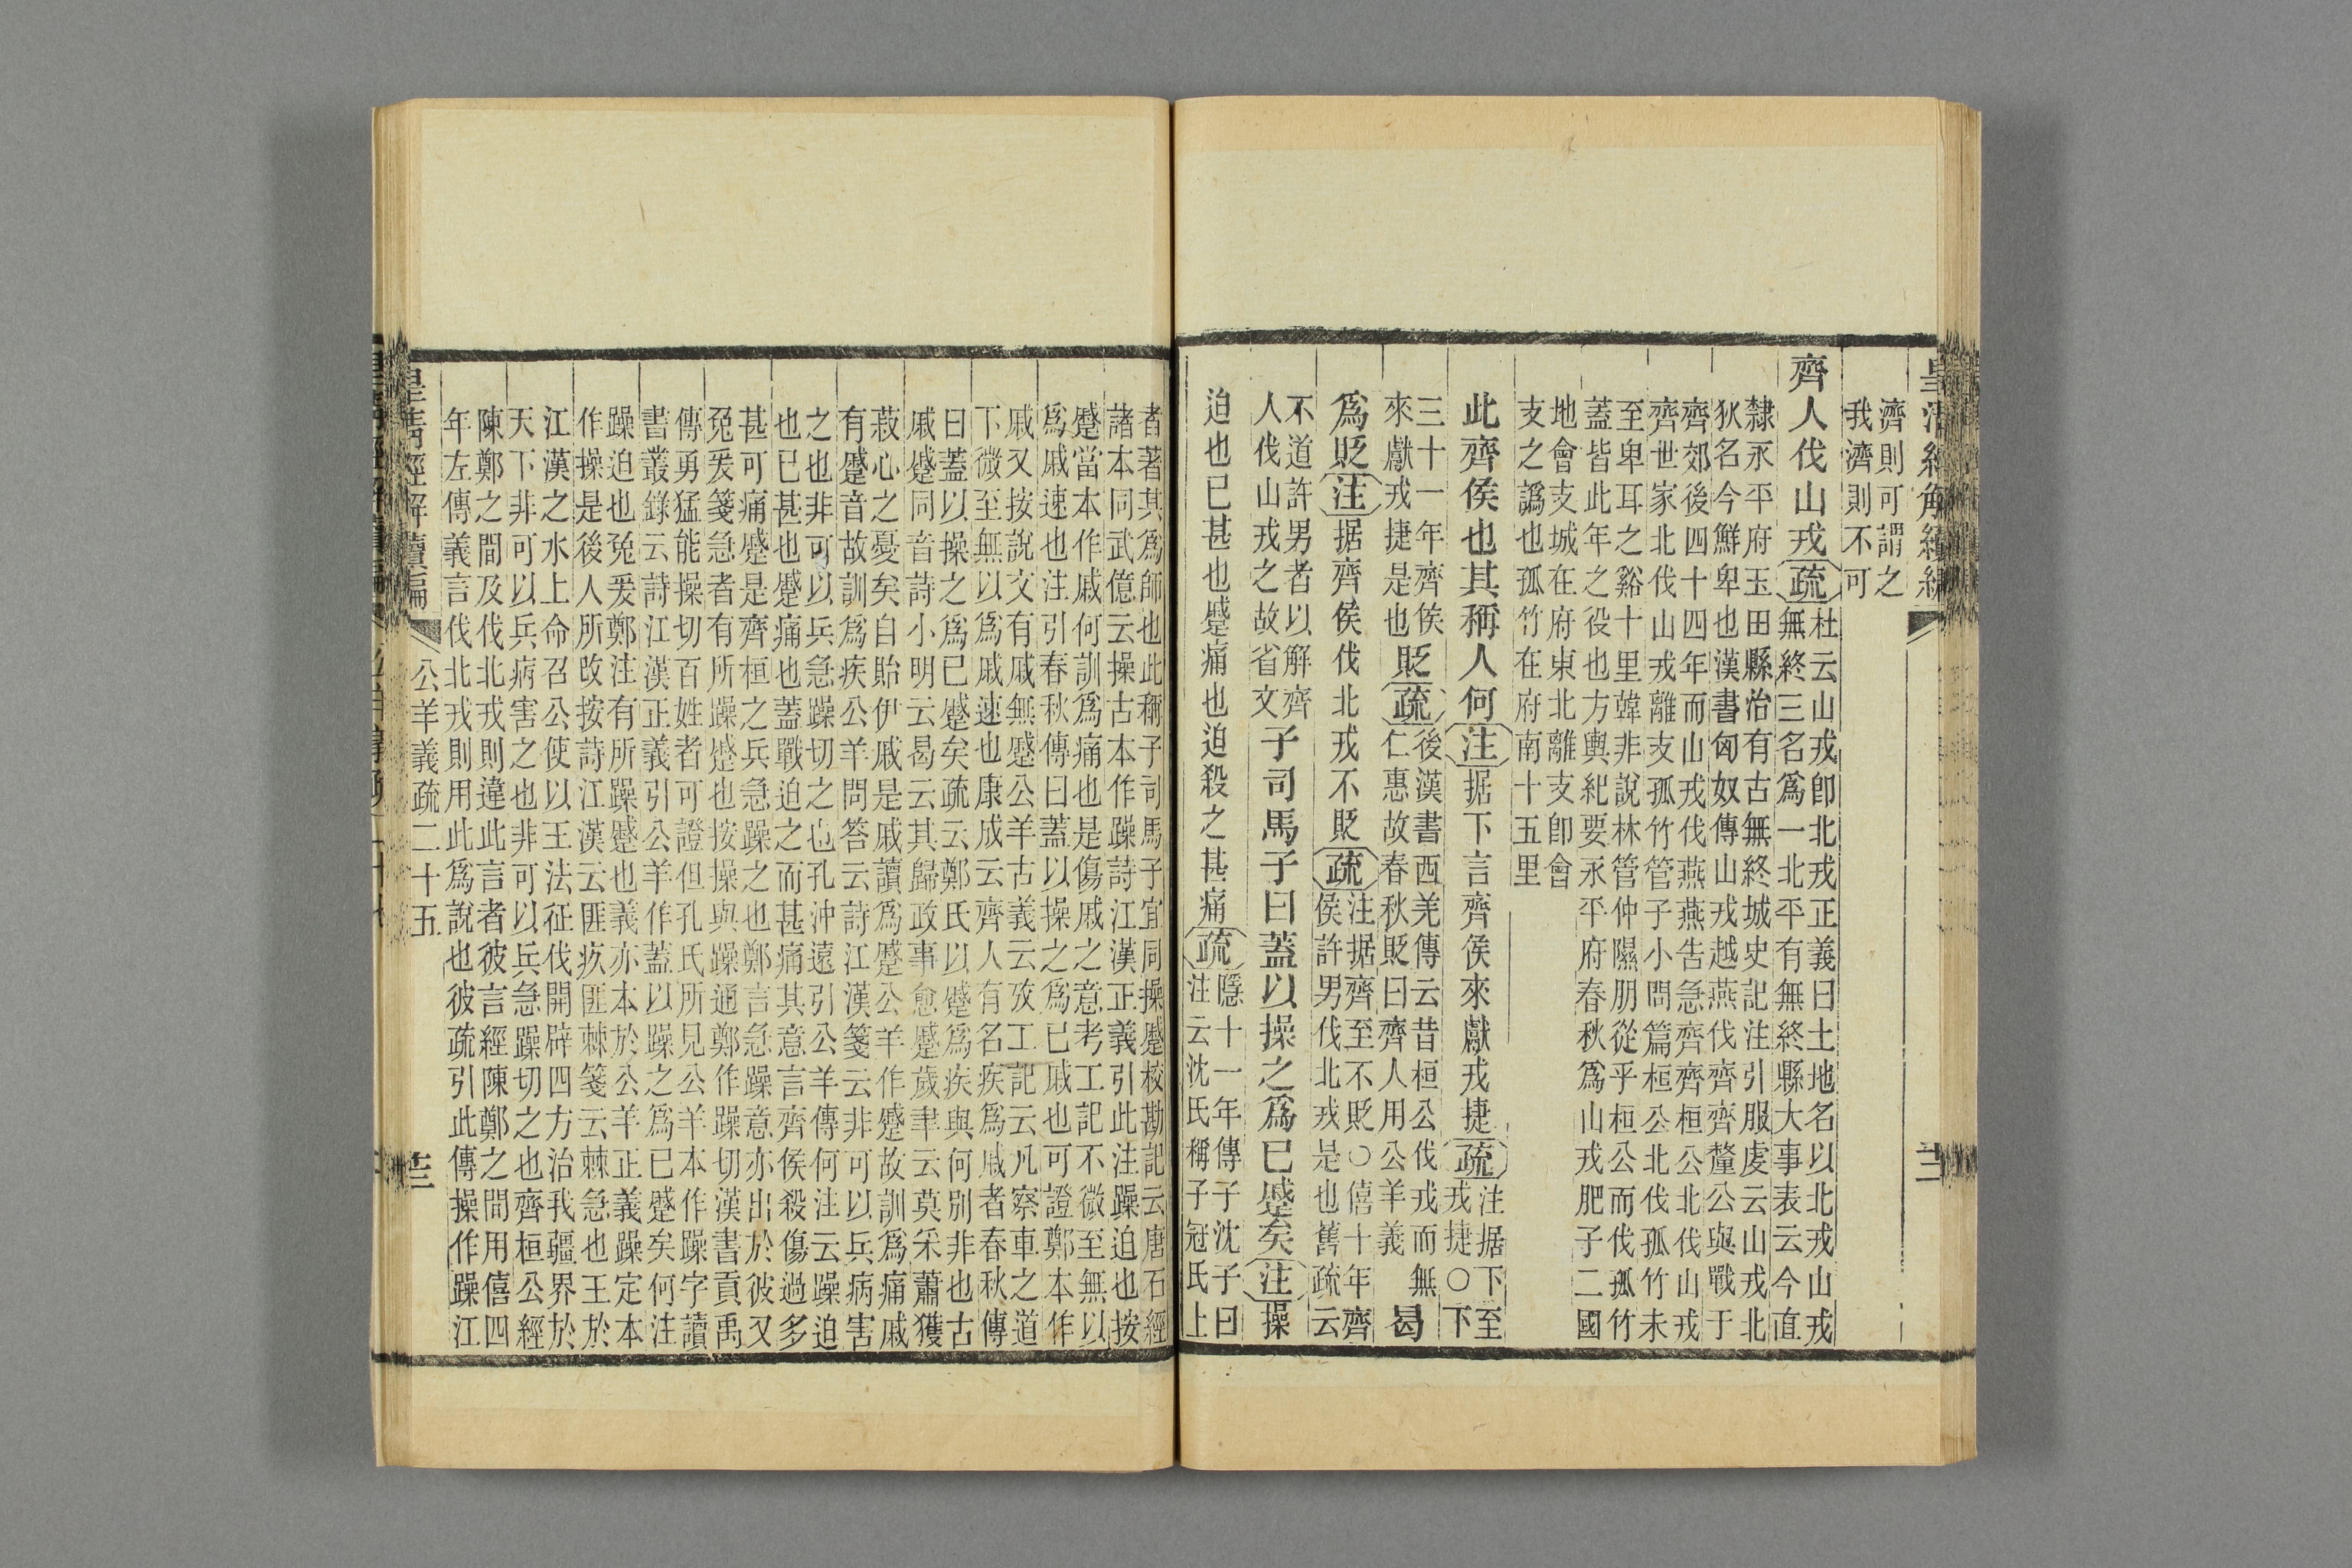 皇清經解續編
濟則可謂之
我濟則不可
齊人伐山戎疏
杜云山戎卽北戎正義曰土地名以北戎山戎
無終三名爲一北平有無終縣大事表云今直
隸永平府玉田縣治有古無終城史記注引服虔云山戎北
狄名今鮮卑也漢書匈奴傳山戎越燕伐齊齊釐公與戰于
齊郊後四十四年而山戎伐燕燕告急齊齊桓公北伐山戎
齊世家北伐山戎離支孤竹管子小問篇桓公北伐孤竹未
至卑耳之谿十里韓非說林管仲隰朋從乎桓公而伐孤竹
蓋皆此年之役也方輿紀要永平府春秋爲山戎肥子二國
地會支城在府東北離支卽會
支之譌也孤竹在府南十五里
此齊侯也其稱人何注据下言齊侯來獻戎捷疏
注据下至
戎捷○下
三十一年齊侯
來獻戎捷是也貶疏
後漢書西羌傳云昔桓公伐戎而無
仁惠故春秋貶曰齊人用公羊義曷
爲貶注据齊侯伐北戎不貶疏
注据齊至不貶○僖十年齊
侯許男伐北戎是也舊疏云
不道許男者以解齊
人伐山戎之故省文
子司馬子曰蓋以操之爲已蹙矣注操
迫也已甚也蹙痛也迫殺之甚痛疏
隱十一年傳子沈子曰
注云沈氏稱子冠氏上
者著其爲師也此稱子司馬子宜同操蹙校勘記云唐石經
諸本同武億云操古本作躁詩江漢正義引此注躁迫也按
蹙當本作戚何訓爲痛也是傷戚之意考工記不微至無以
爲戚速也注引春秋傳曰蓋以操之爲已戚也可證鄭本作
戚又按說文有戚無蹙公羊古義云攷工記云凡察車之道
下微至無以爲戚速也康成云齊人有名疾爲戚者春秋傳
曰蓋以操之爲已蹙矣疏云鄭氏以蹙爲疾與何別非也古
戚蹙同音詩小明云曷云其歸政事愈蹙歲聿云莫采蕭獲
菽心之憂矣自貽伊戚是戚讀爲蹙公羊作蹙故訓爲痛戚
有蹙音故訓爲疾公羊問答云詩江漢箋云非可以兵病害
之也非可以兵急躁切之也孔沖遠引公羊傳何注云躁迫
也已甚也蹙痛也蓋戰迫之而甚痛其意言齊侯殺傷過多
甚可痛蹙是齊桓之兵急躁之也鄭言急躁意亦出於彼又
兔爰箋急者有所躁蹙也按操與躁通鄭作躁切漢書貢禹
傳勇猛能操切百姓者可證但孔氏所見公羊本作躁字讀
書叢錄云詩江漢正義引公羊作蓋以躁之爲已蹙矣何注
躁迫也兔爰鄭注有所躁蹙也義亦本於公羊正義躁定本
作操是後人所改按詩江漢云匪疚匪棘箋云棘急也王於
江漢之水上命召公使以王法征伐開辟四方治我疆界於
天下非可以兵病害之也非可以兵急躁切之也齊桓公經
陳鄭之間及伐北戎則違此言者彼言經陳鄭之間用僖四
年左傳義言伐北戎則用此爲說也彼疏引此傳操作躁江
皇清經解續編
公羊義疏二十五